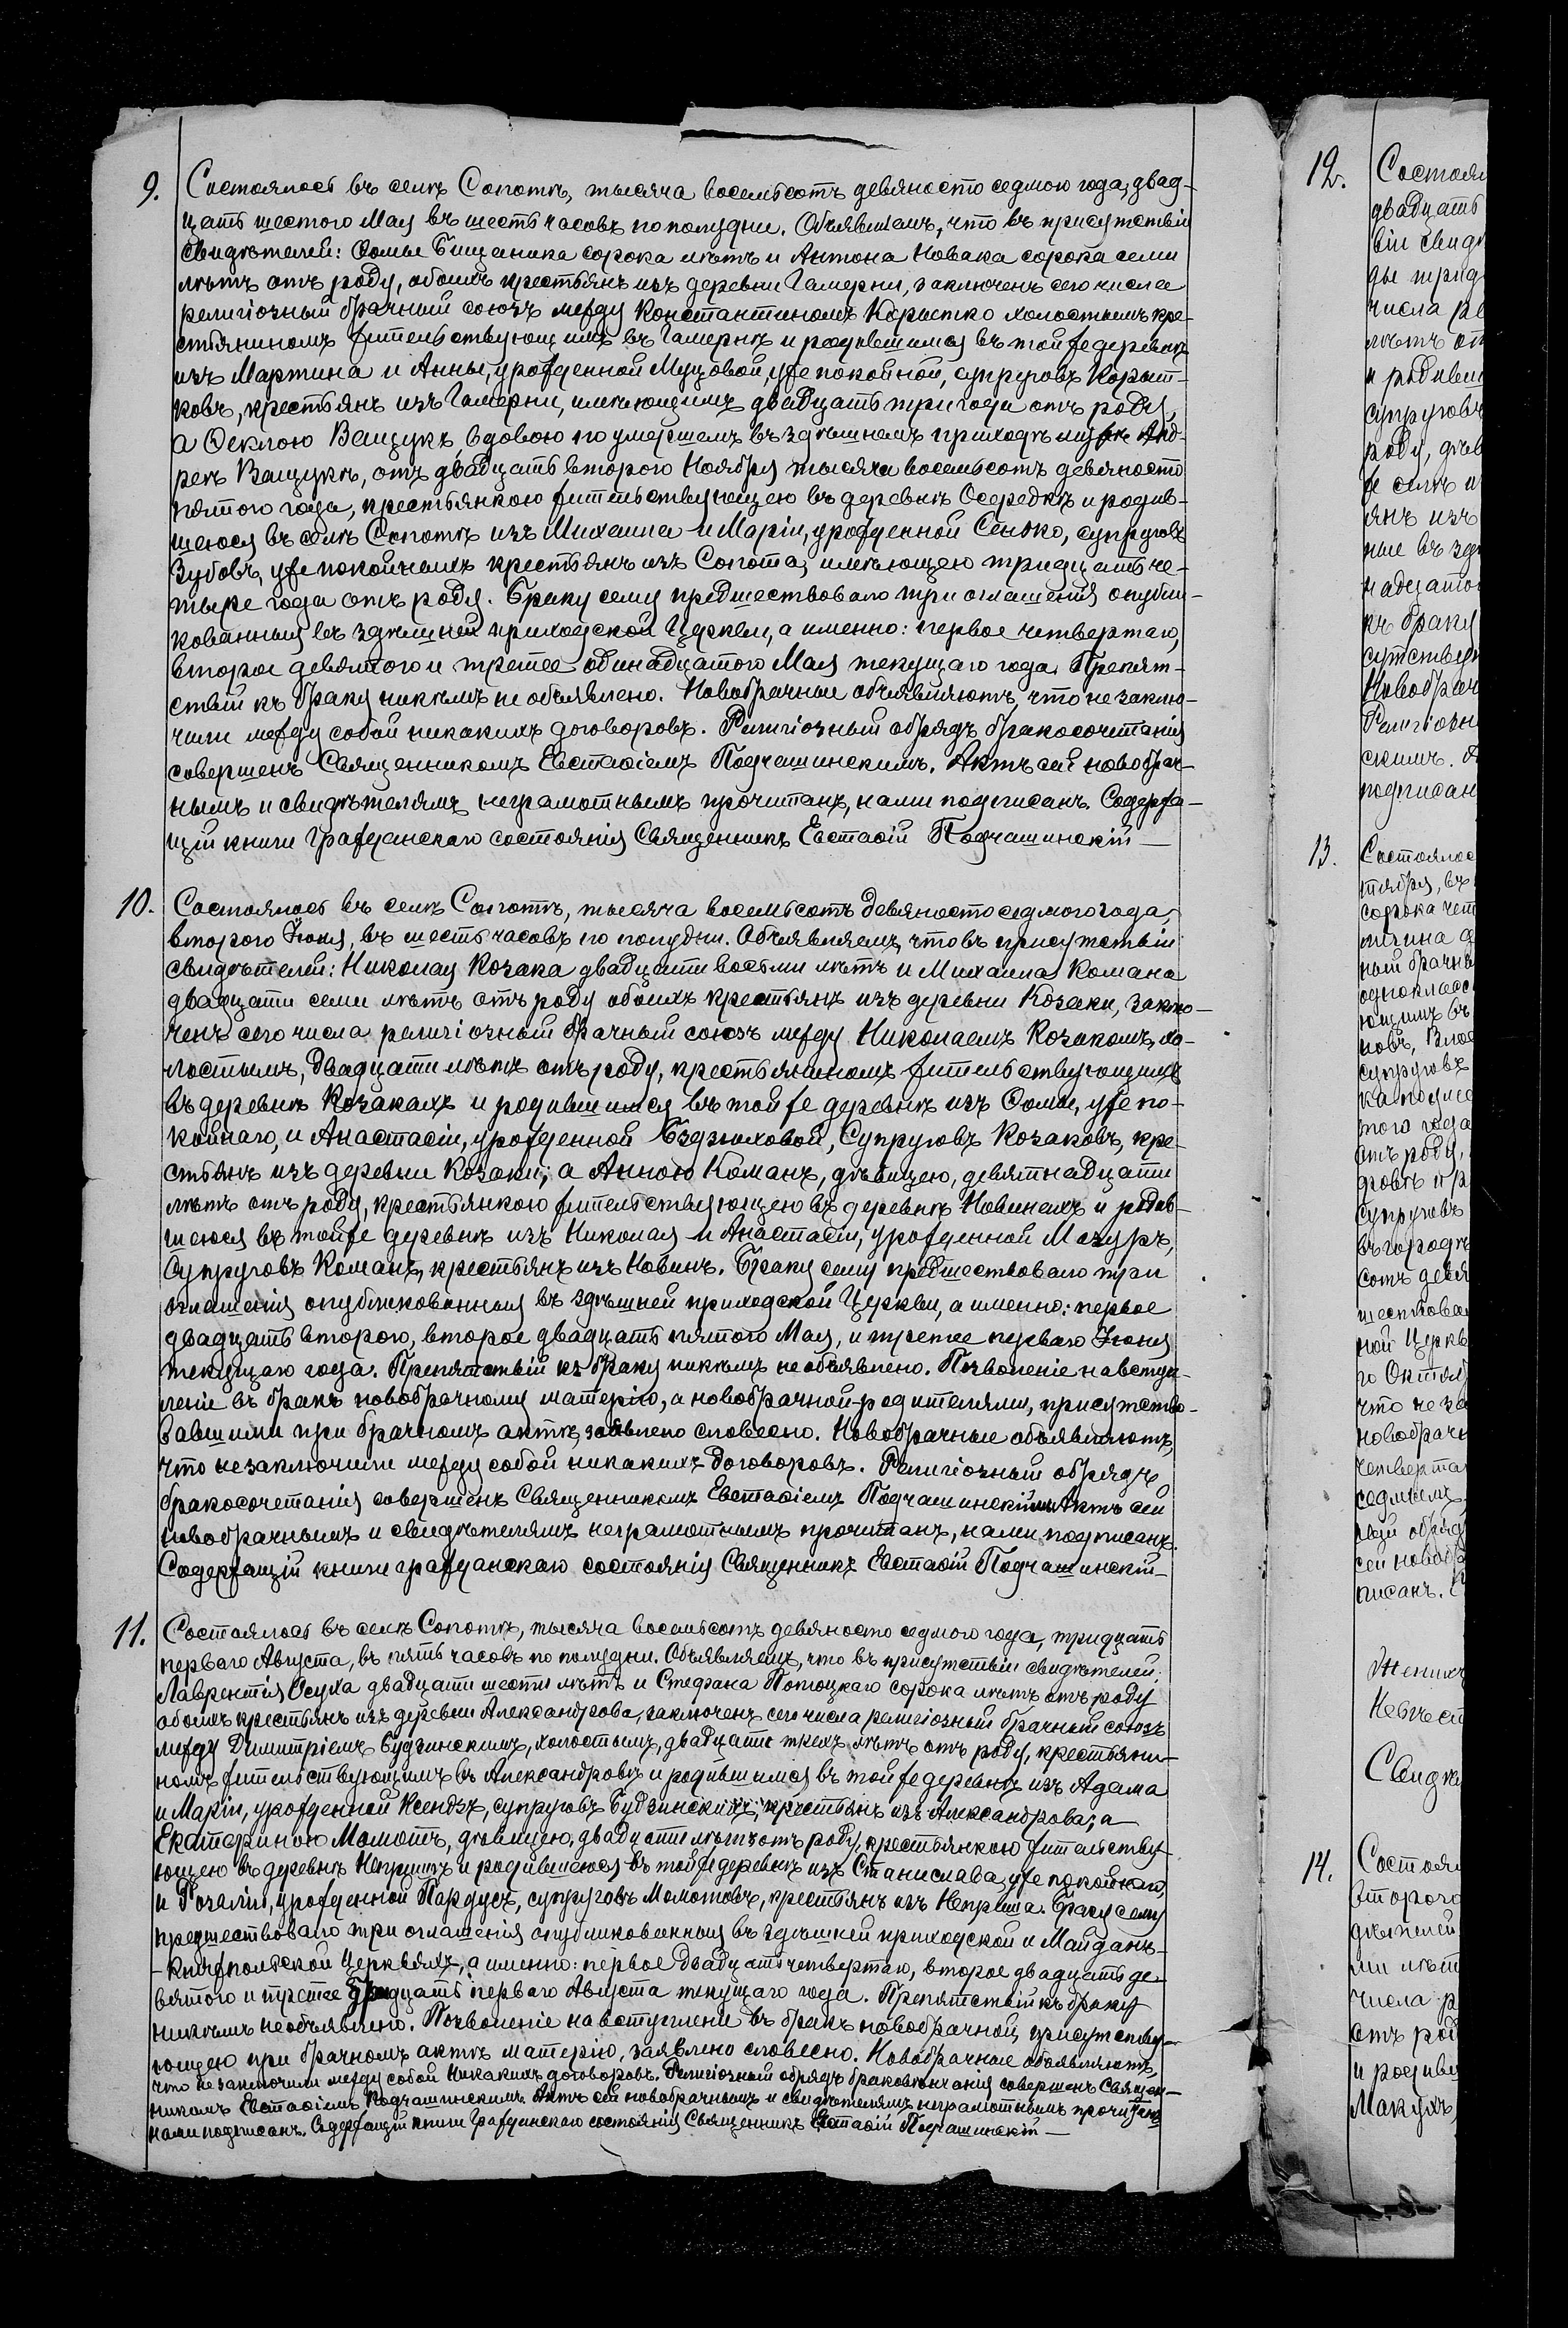 9. Состоялось въ селѣ Сопотѣ, тысяча восемьсотъ девяносто седмого года, двад-
цать шестого Мая въ шесть часовъ по полудни. Объявляемъ, что въ присутствіи
свидѣтелей: Ѳомы Бищаника сорока лѣтъ и Антона Новака сорока семи
лѣтъ отъ роду, обоихъ крестьянъ изъ деревни Гамерни, заключенъ сего числа
религіозный брачный союзъ между Константиномъ Корытко холостымъ кре-
стьяниномъ жительствующимъ въ Гамернѣ и родившимся въ той же деревнѣ
изъ Мартина и Анны, урожденной Муцовой, уже покойной, супруговъ Корыт-
ковъ, крестьянъ изъ Гамерни, имѣющимъ двадцать три года отъ роду,
а Ѳеклою Ващукъ, вдовою по умершемъ въ здѣшнемъ приходѣ мужѣ Анд-
реѣ Ващукѣ, отъ двадцать второго Ноября тысяча восемьсотъ девяносто
пятого года, крестьянкою жительствующею въ деревнѣ Осередкѣ и родив-
шеюся въ селѣ Сопотѣ изъ Михаила и Маріи, урожденной Сенько, супруговъ
Зубовъ, уже покойныхъ крестьянъ изъ Сопота, имѣющею тридцать че-
тыре года отъ роду. Браку сему предшествовало три оглашенія опубли-
кованныя въ здѣшней приходской Церкви, а именно: первое четвертаго,
второе девятого и третее одинадцатого Мая текущаго года. Препят-
ствій къ браку никѣмъ не объявлено. Новобрачные объявляютъ, что не заклю-
чили между собой никакихъ договоровъ. Религіозный обрядъ бракосочетанія
совершенъ Священникомъ Евстафіемъ Подчашинскимъ. Актъ сей новобрач-
нымъ и свидѣтелямъ неграмотнымъ прочитанъ, нами подписанъ. Содержа-
щій книги гражданскаго состоянія Священникъ Евстафій Подчашинскій
10. Состоялось въ селѣ Сопотѣ, тысяча восемьсотъ девяносто седмого года,
второго Іюня, въ шесть часовъ по полудни. Объявляемъ, что въ присутствіи
свидѣтелей: Николая Козака двадцати восьми лѣтъ и Михаила Комана
двадцати семи лѣтъ отъ роду обоихъ крестьянъ изъ деревни Козаки, заклю-
ченъ сего числа религіозный брачный союзъ между Николаемъ Козакомъ, хо-
лостымъ, двадцати лѣтъ отъ роду, крестьяниномъ жительствующимъ
въ деревнѣ Козакахъ и родившимся въ той же деревнѣ изъ Ѳомы, уже по-
койнаго, и Анастасіи, урожденной Бздзюховой, Супруговъ Козаковъ, кре-
стьянъ изъ деревни Козаки; а Анною Команъ, дѣвицею, девятнадцати
лѣтъ отъ роду, крестьянкою жительствующею въ деревнѣ Новинахъ и родив-
шеюся въ той же деревнѣ изъ Николая и Анастасіи, урожденной Мазуръ,
Супруговъ Команъ, крестьянъ изъ Новинъ. Браку сему предшествовало три
оглашенія опубликованныя въ здѣшней приходской Церкви, а именно: первое
двадцать второго, второе двадцать пятого Мая, и третее перваго Іюня
текущаго года. Препятствій къ браку никѣмъ не объявлено. Позволеніе на вступ-
леніе въ бракъ новобрачному матерію, а новобрачной родителями, присутство-
вавшими при брачномъ актѣ, заявлено словесно. Новобрачные объявляютъ,
что незаключили между собой никакихъ договоровъ. Религіозный обрядъ
бракосочетанія совершенъ Священникомъ Евстафіемъ Подчашинскимъ. Актъ сей
новобрачнымъ и свидѣтелямъ неграмотнымъ прочитанъ, нами подписанъ.
Содержащій книги гражданскаго состоянія Священникъ Евстафій Подчашинскій
11. Состоялось въ селѣ Сопотѣ, тысяча восемьсотъ девяносто седмого года, тридцать
перваго Августа, въ пять часовъ по полудни. Объявляемъ, что въ присутствіи свидѣтелей:
Лаврентія Осуха двадцати шести лѣтъ и Стефана Потоцкаго сорока лѣтъ отъ роду
обоихъ крестьянъ изъ деревни Александрова, заключенъ сего числа религіозный брачный союзъ
между Димитріемъ Будзинскимъ, холостымъ, двадцати трехъ лѣтъ отъ роду, крестьяни-
номъ жительствующимъ въ Александровѣ и родившимся въ той же деревнѣ изъ Адама
и Маріи, урожденной Ксендзъ, супруговъ Будзинскихъ, крестьянъ изъ Александрова, а
Екатериною Момотъ, дѣвицею, двадцати лѣтъ отъ роду, крестьянкою жительству-
ющею въ деревнѣ Непришѣ и родившеюся въ той же деревнѣ изъ Станислава, уже покойнаго,
и Розаліи, урожденной Пардусъ, супруговъ Момотовъ, крестьянъ изъ Неприша. Браку сему
предшествовало три оглашенія опубликованныя въ здѣшней приходской и Майданъ-
-Княжпольской Церквяхъ, а именно: первое двадцать четвертаго, второе двадцать де-
вятого и третее тридцать перваго Августа текущаго года. Препятствій къ браку
никѣмъ не объявлено. Позволеніе на вступленіе въ бракъ новобрачной, присутству-
ющею при брачномъ актѣ матерію, заявлено словесно. Новобрачные объявляютъ,
что не заключили между собой никакихъ договоровъ. Религіозный обрядъ бракосочетанія совершенъ Священ-
никомъ Евстафіемъ Подчашинскимъ. Актъ сей новобрачнымъ и свидѣтелямъ неграмотнымъ прочитанъ
нами подписанъ. Содержащій книги гражданскаго состоянія Священникъ Евстафій Подчашинскій
12. Состоял
двадцать
віи свидѣ
ды трид
числа ре
лѣтъ от
и родивш
супруговъ
роду, дѣв
же селѣ и
янъ изъ
ные въ зд
надцато
къ браку
сутствую
Новобрач
Религіозн
скимъ. А
подписан
13. Состоялос
тября, въ
сорока чет
ный брачн
однокласс
ющимъ въ
супруговъ
того года
отъ роду,
супруговъ
въ городѣ
сотъ девя
ной Церкв
го Октяб
что не за
новобрачн
четверта
седмымъ
сей новобр
писанъ. С
Женихъ
Невѣст
Свидѣ
14. Состоял
второго
дѣтелей
ми лѣт
числа р
отъ род
и родивш
Макухъ,